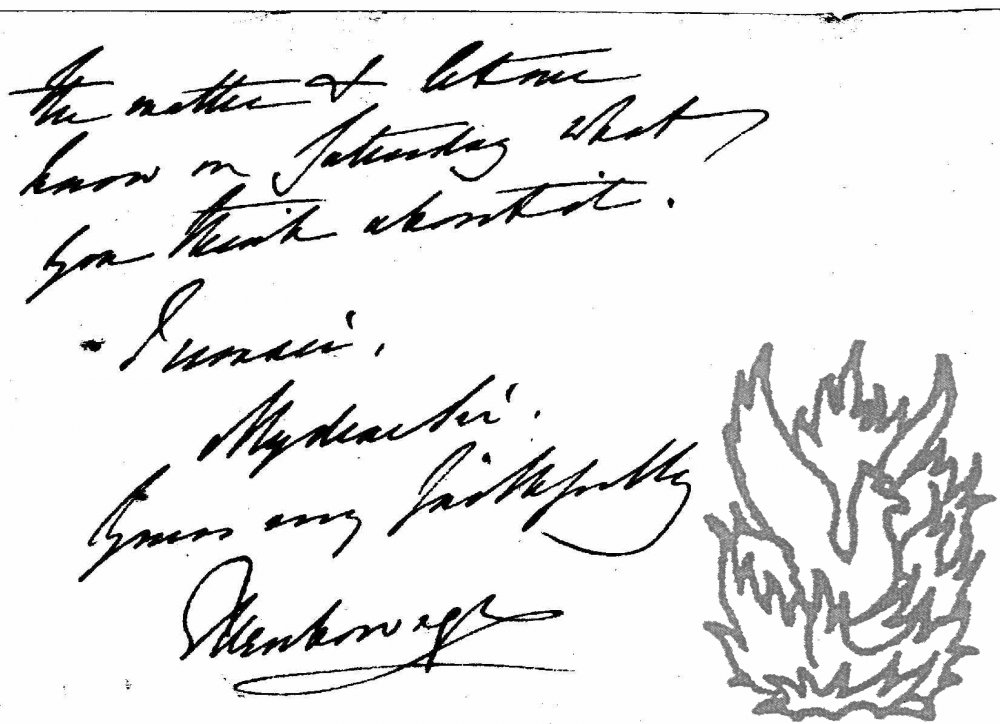 the matter & let me
know on Saturday what
you think about it.
I remain,
My dear Sir.
Yours very faithfully
Ellenborough